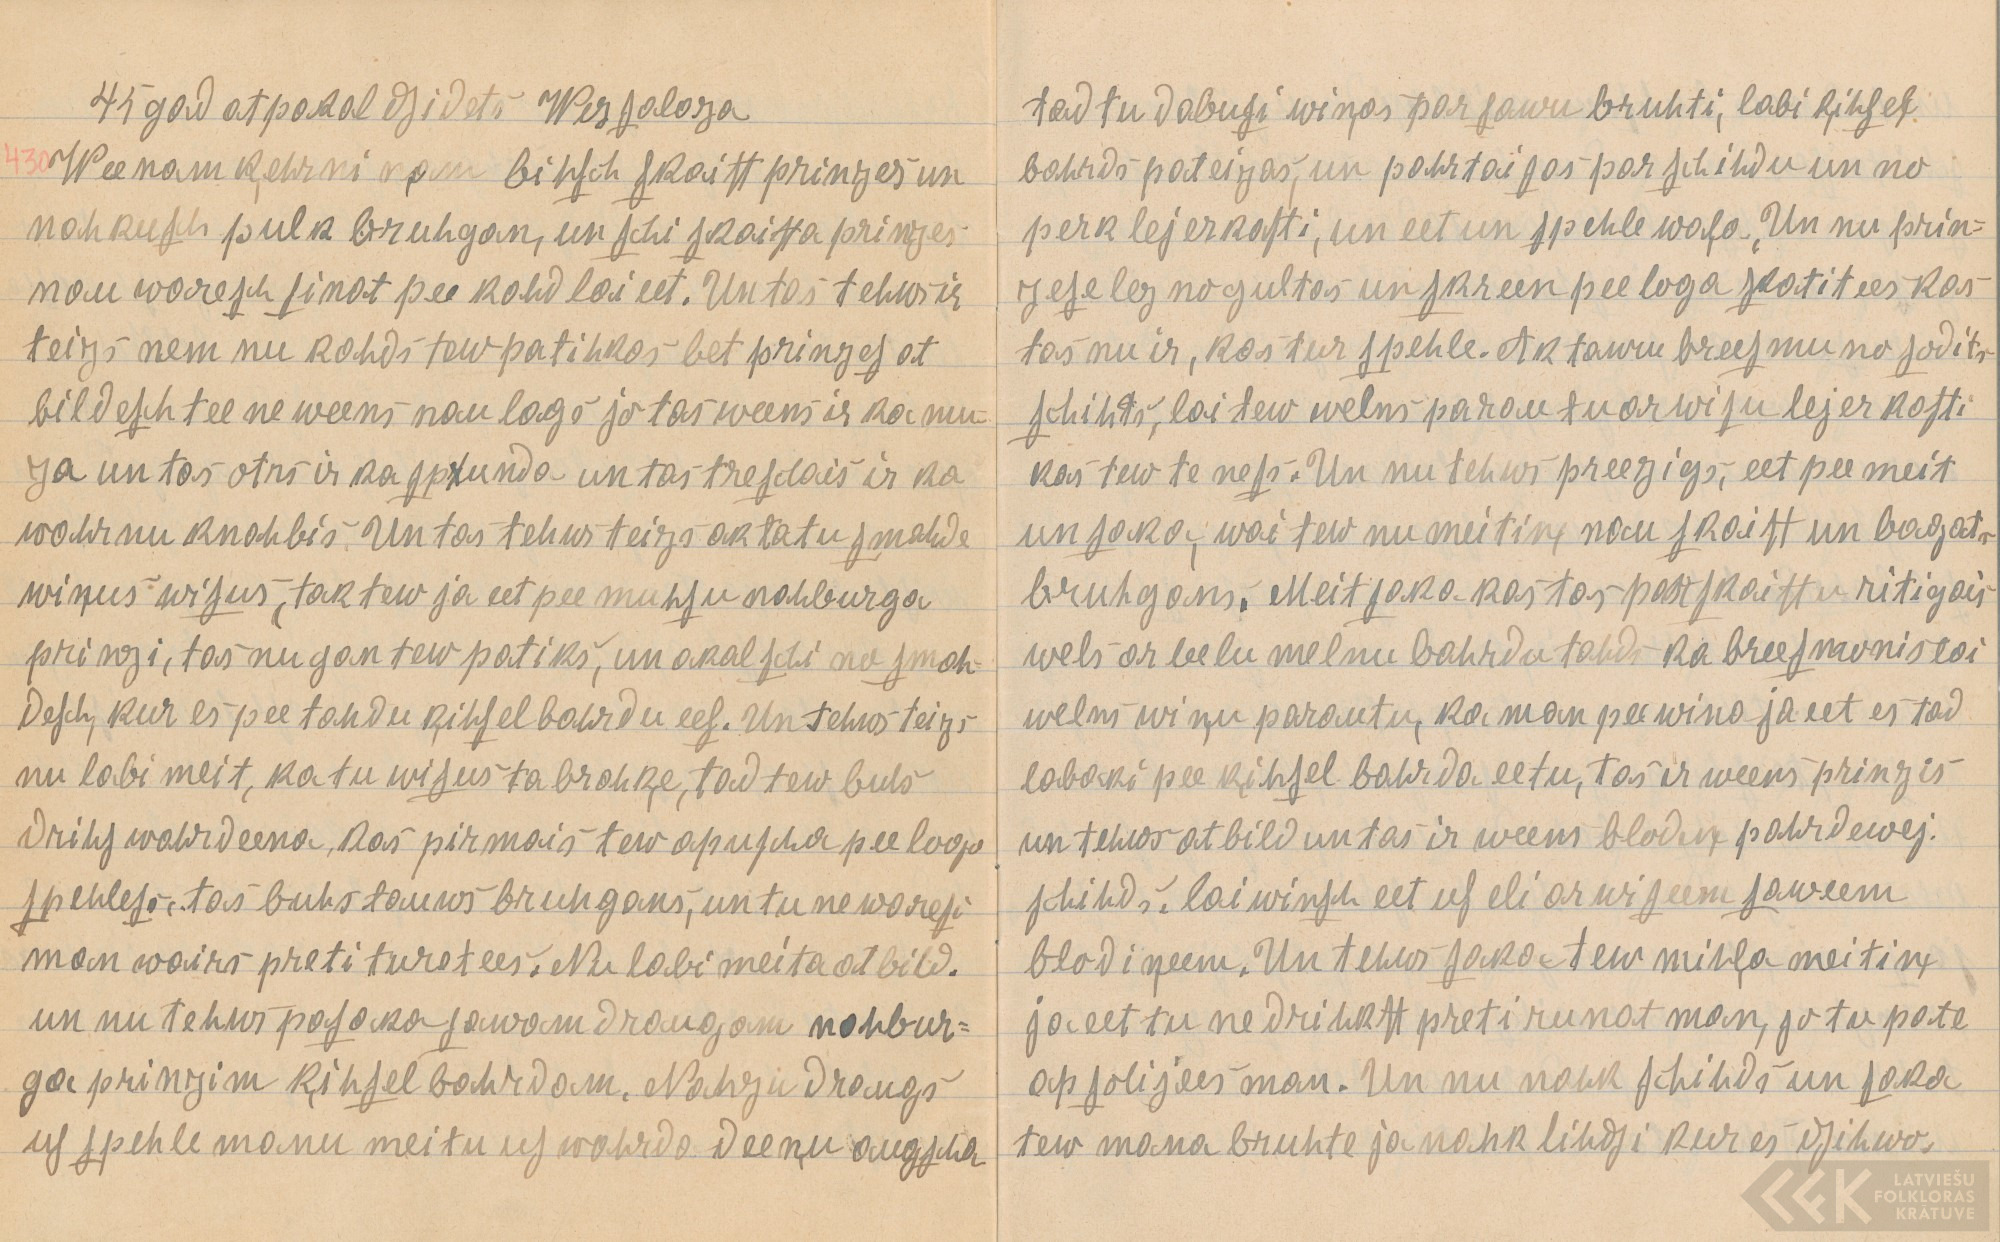 45 gad atpakal dſidets Wezſaloza
430 Weenam kehrninam bihſch ſkaiſt prinzes un
nahkuſch pulk bruhgan, un ſchi ſkaiſta prinzes
nau wareſch ſinat pee kahd lai eet. Un tas tehws ir
teizs nem nu kahds tew patihkas bet prinzeſ at
bildeſch tee ne weens nau lags jo tas weens ir ka mu-
za un tas otrs ir ka ſpunda un tas treſchais ir ka
wahrnu knahbis. Un tas tehws teizs ak ta tu ſmahde
wiņus wiſus, tak tew ja eet pee muhſu nahburga
prinzi, tas nu gan tew patiks, un akal ſchi no ſmah-
deſch, kur es pee tahdu ķihſel bahrdu eeſ. Un tehws teizs
nu labi meit, ka tu wiſus ta brahķe, tad tew buhs
drihſ wahrdeena, kas pirmais tew apuſcha pee loga
ſpehleſs, tas buhs tauws bruhgans, un tu ne wareſi
man wairs preti turetees. Nu labi meita atbild.
un nu tehws paſaka ſawam draugam nahbur=
ga prinzim ķihſel bahrdam. Nahz ju draugs
uſ ſpehle manu meitu uſ wahrda deenu augſcha
tad tu dabuſi wiņas par ſawu bruhti, labi ķihſeſ
bahrds pateizas, un pahrtaiſas par ſchihdu un no
perk lejerkaſti, un eet un ſpehle waļa. Un nu prin=
zeſe lez no gultas un ſkreen pee loga ſkatitees kas
tas nu ir, kas tur ſpehle. Ak tawu breeſmu no ſodits
ſchihts, lai tew welns parau tu ar wiſu lejer kaſti
kas tew te neſs. Un nu tehws preezigs, eet pee meit
un ſaka, wai tew nu meitiņ nau ſkaiſt un bagats
bruhgans. Meit ſaka kas tas par ſkaiſtu ritigais
wels ar leelu melnu bahrdu tahds ka breeſmonis lai
welns wiņu parautu, ka man pee wina ja eet es tad
labaki pee ķihſel bahrda eetu, tas ir weens prinzis
un tehws atbild un tas ir weens blodiņ pahrdewej.
ſchihds. lai winſch eet uſ eli ar wiſeem ſaweem
blodiņeem. Un tehws ſaka tew mihļa meitiņ
ja eet tu ne drihkſt preti runat man, jo tu pate
apſolijees man. Un nu nahk ſchihds un ſaka
tew mana bruhte ja nahk lihdſi kur es dſihwo,
LATVIEŠU
FOLKLORAS
KRĀTUVE